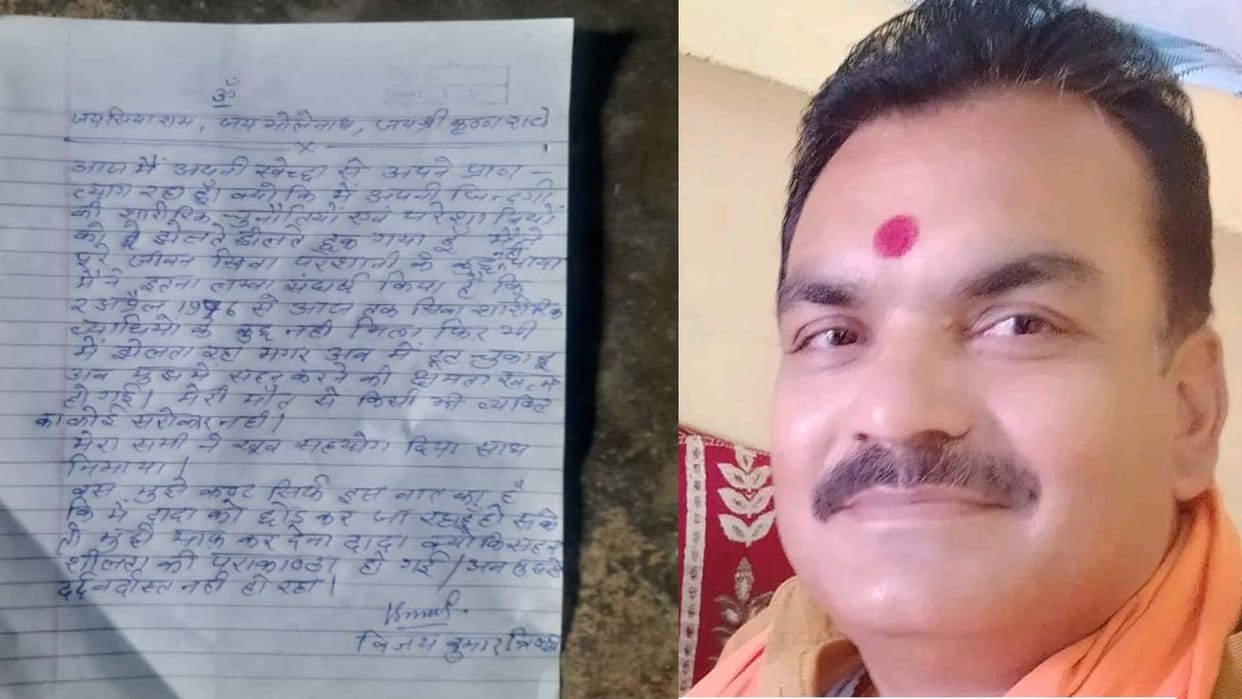 ॐ
जय सियाराम, जय भोलेनाथ, जय श्री कृष्ण राधे
आज मैं अपनी स्वेच्छा से अपने प्राण -
त्याग रहा हूँ। क्योंकि में अपनी जिन्दगी
की शारीरिक चुनौतियों एवं परेशानियों
को झेलते झेलते थक गया हूँ मैंने
पूरे जीवन सिवा परेशानी के कुछ नहीं पाया
मैंने इतना लम्बा संघर्ष किया है कि
2 अप्रैल 1976 से आज तक सिवा शारीरिक
व्याधियों के कुछ नहीं मिला फिर भी
में झेलता रहा मगर अब में टूट चुका हूँ
अब मुझमें सहन करने की क्षमता खत्म
हो गई। मेरी मौत से किसी भी व्यक्ति
का कोई सरोकार नहीं।
मेरा सभी ने खूब सहयोग दिया साथ
निभाया।
बस मुझे कष्ट सिर्फ इस बात का है
कि में दादा को छोड़कर जा रहा हूँ हो सके
तो मुझे माफ कर देना दादा क्योंकि सहन
शीलता की पराकाष्ठा हो गई। अब
दर्द बर्दास्त नहीं हो रहा।
विजय कुमार